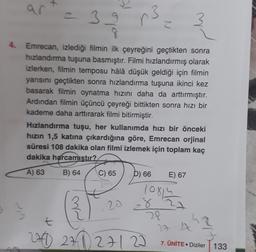 4. Emrecan, izlediği filmin ilk çeyreğini geçtikten sonra
hızlandırma tuşuna basmıştır. Filmi hızlandırmış olarak
izlerken, filmin temposu hâlâ düşük geldiği için filmin
yarısını geçtikten sonra hızlandırma tuşuna ikinci kez
basarak filmin oynatma hızını daha da arttırmıştır.
Ardından filmin üçüncü çeyreği bittikten sonra hızı bir
kademe daha arttırarak filmi bitirmiştir.
Hızlandırma tuşu, her kullanımda hızı bir önceki
hızın 1,5 katına çıkardığına göre, Emrecan orjinal
süresi 108 dakika olan filmi izlemek için toplam kaç
dakika harcamıştır?
A) 63 B) 64 C) 65 D) 66 E) 67
7. ÜNİTE • Diziler 133